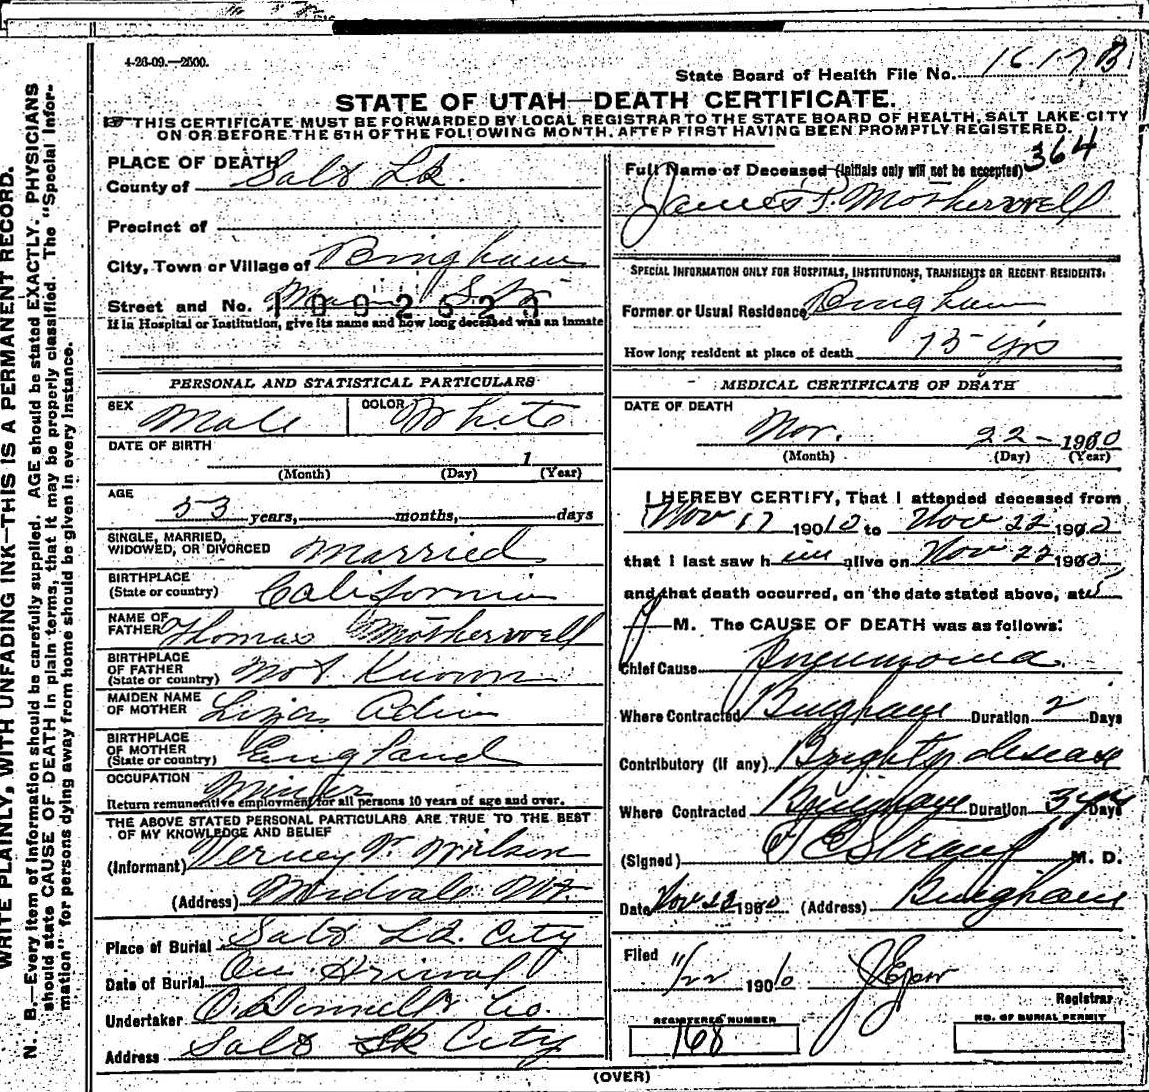 4-26-09.—2500.
State Board of Health File No.
STATE OF UTAH—DEATH CERTIFICATE.
THIS CERTIFICATE MUST BE FORWARDED BY LOCAL REGISTRAR TO THE STATE BOARD OF HEALTH, SALT LAKE CITY
ON OR BEFORE THE 5TH OF THE FOLLOWING MONTH, AFTER FIRST HAVING BEEN PROMPTLY REGISTERED.
WRITE PLAINLY, WITH UNFADING INK—THIS IS A PERMANENT RECORD.
N. B.—Every item of information should be carefully supplied. AGE should be stated EXACTLY. PHYSICIANS
should state CAUSE OF DEATH in plain terms, that it may be properly classified. The "Special Infor-
mation" for persons dying away from home should be given in every instance.
PLACE OF DEATH
County of Salt Lk.
Precinct of
City, Town or Village of Bingham
Street and No. Main St.
1092523
If in Hospital or Institution, give its name and how long deceased was an inmate
PERSONAL AND STATISTICAL PARTICULARS
SEX Male COLOR White
DATE OF BIRTH 1
(Month) (Day) (Year)
AGE
53 years, months, days
SINGLE, MARRIED,
WIDOWED, OR DIVORCED Married
BIRTHPLACE
(State or country) California
NAME OF
FATHER Thomas Motherwell
BIRTHPLACE
OF FATHER
(State or country) Not Known
MAIDEN NAME
OF MOTHER Liza
BIRTHPLACE
OF MOTHER
(State or country) England
OCCUPATION Miner
Return remunerative employment for all persons 10 years of age and over.
THE ABOVE STATED PERSONAL PARTICULARS ARE TRUE TO THE BEST
OF MY KNOWLEDGE AND BELIEF
(Informant)
(Address) Midvale
Place of Burial Salt Lk. City
Date of Burial On Arrival
Undertaker O'Donnell & Co.
Address Salt Lk City
364
Full Name of Deceased (Initials only will not be accepted)
James P. Motherwell
SPECIAL INFORMATION ONLY FOR HOSPITALS, INSTITUTIONS, TRANSIENTS OR RECENT RESIDENTS:
Former or Usual Residence Bingham
How long resident at place of death 15 yrs
MEDICAL CERTIFICATE OF DEATH
DATE OF DEATH
Nov. 22 - 1910
(Month) (Day) (Year)
I HEREBY CERTIFY, That I attended deceased from
Nov 17 1910 to Nov 22 1910
that I last saw him alive on Nov 22 1910
and that death occurred, on the date stated above, at 5
P M. The CAUSE OF DEATH was as follows:
Chief Cause Pneumonia
Where Contracted Bingham Duration 2 Days
Contributory (if any) Brights disease
Where Contracted Bingham Duration 3 yrs Days
(Signed) M. D.
Date Nov 22 1910 (Address) Bingham
Filed 11/22 1910
Registrar
REGISTERED NUMBER
168
NO. OF BURIAL PERMIT
(OVER)